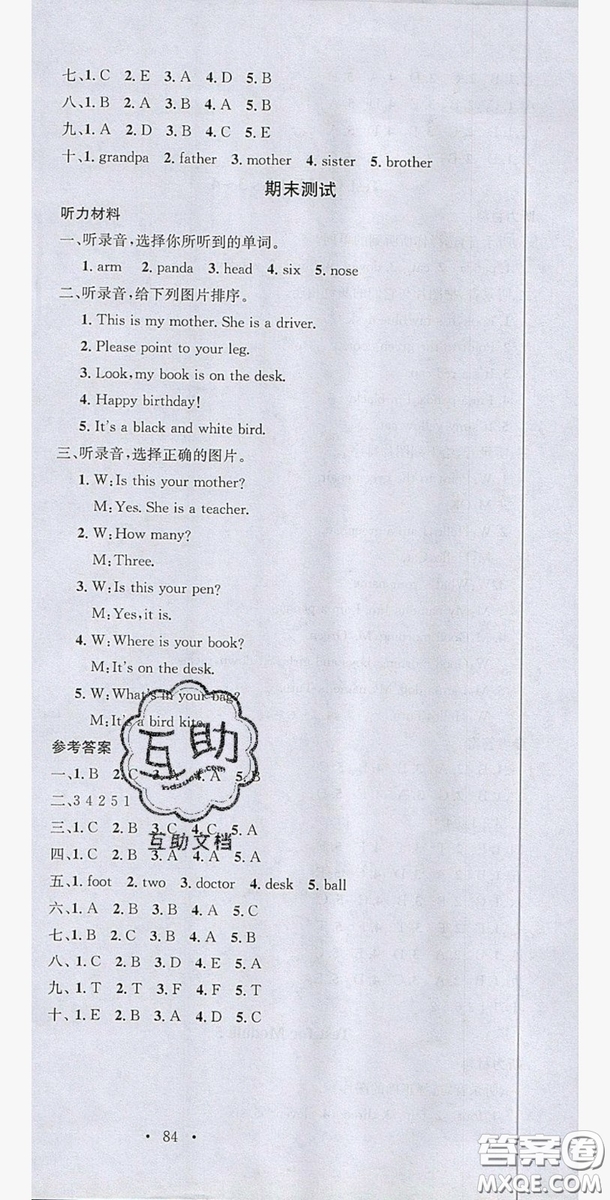 七、1. C 2. E 3. A 4. D 5. B
八、1. B 2. A 3. B 4. A 5. B
九、1. A 2. D 3. B 4. C 5. E
十、1. grandpa 2. father 3. mother 4. sister 5. brother
期末测试
听力材料
一、听录音,选择你所听到的单词。
1. arm 2. panda 3. head 4. six 5. nose
二、听录音,给下列图片排序。
1. This is my mother. She is a driver.
2. Please point to your leg.
3. Look, my book is on the desk.
4. Happy birthday!
5. It's a black and white bird.
三、听录音,选择正确的图片。
1. W: Is this your mother?
M: Yes. She is a teacher.
2. W: How many?
M: Three.
3. W: Is this your pen?
M: Yes, it is.
4. W: Where is your book?
M: It's on the desk.
5. W: What's in your bag?
M: It's a bird kite.
参考答案
一、1. B 2. C 4. A 5. B
二、3 4 2 5 1
三、1. C 2. B 3. C 4. C 5. A
四、1. C 2. B 3. A 4. A 5. A
五、1. foot 2. two 3. doctor 4. desk 5. ball
六、1. A 2. B 3. A 4. B 5. C
七、1. B 2. C 3. A 4. B 5. A
八、1. C 2. B 3. D 4. E 5. A
九、1. T 2. T 3. F 4. F 5. T
十、1. E 2. B 3. A 4. D 5. C
• 84 •
互助
互助文档
答案圈
MXQE.COM